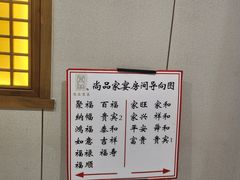 尚品家宴房间导向图
聚福 百福 家旺 家和
纳福 贵宾2 家兴 祥和
鸿福 泰和 平安 舜和
如意 吉祥 富贵 贵宾1
福禄 福寿
福顺